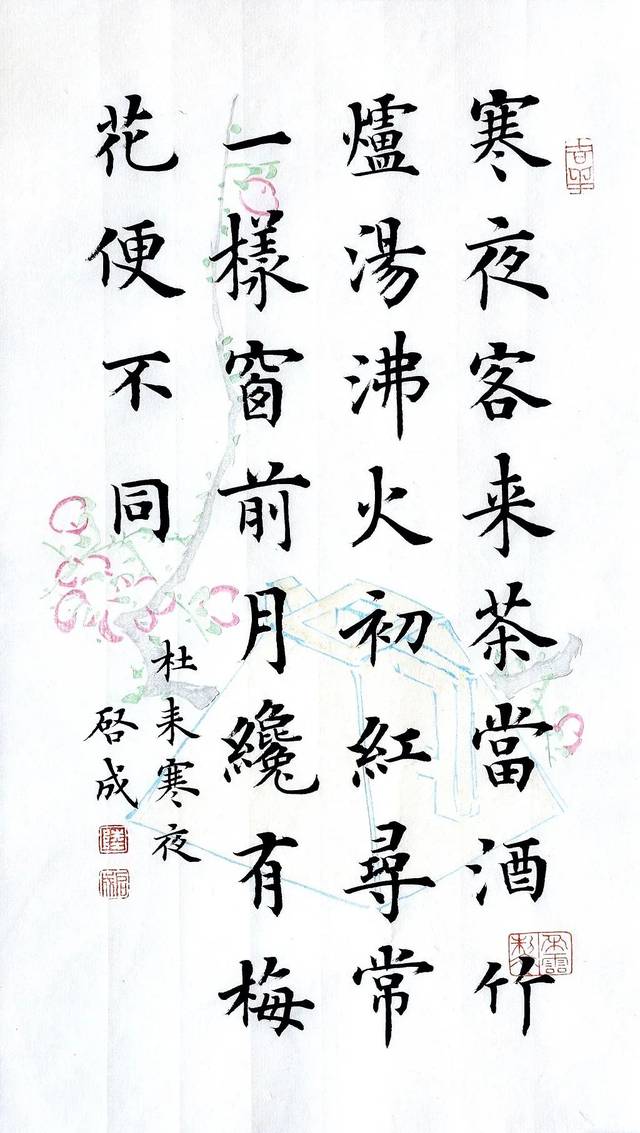 寒夜客来茶當酒竹
爐湯沸火初紅尋常
一樣窗前月纔有梅
花便不同
杜耒寒夜
啓成